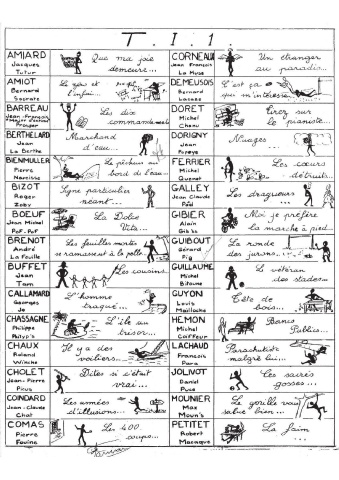 T. I. 1.
AMIARD
Jacques
Tutur
Que ma joie
demeure...
CORNEAUX
Jean François
La Muse
Un étranger
au paradis...
AMIOT
Bernard
Socrate
Le yéti et
l'enfai...
DEMEUSOIS
Bernard
C'est ça
qui m'intéresse
BARREAU
Jean-François
Prosper
Les dix
commandements
DORET
Michel
Chanu
Tirez sur
le pianiste
BERTHELARD
Jean
La Berthe
Marchand
d'eau...
DORIGNY
Jean
Popeye
Nuages...
BIENMULLER
Pierre
Narcisse
Le pêcheur au
bord de l'eau...
FERRIER
Michel
Quenet
Les cœurs
détruits...
BIZOT
Roger
Zoby
Signe particulier
néant...
GALLEY
Jean Claude
Paul
Les dragueurs
...
BOEUF
Jean Michel
Pof-Pof
La Dolce
Vita...
GIBIER
Alain
Gib'ss
Moi je préfère
la marche à pied...
BRENOT
André
La Fouille
Les feuilles mortes
se ramassent à la pelle
GUIBOUT
Gérard
Pig
La ronde
des jurons...
BUFFET
Jean
Tam
Les cousins...
GUILLAUME
Michel
Bitoune
Le vétéran
des stades...
CALLAMARD
Georges
Je
L'homme
traqué...
GUYON
Louis
Mailloche
Tête de
bois...
CHASSAGNE
Philippe
Phlyp's
L'île au
trésor...
HEMON
Michel
Coiffeur
Bancs
Publics...
CHAUX
Roland
Il y a des
voiliers...
LACHAUD
François
Para
Parachutiste
malgré lui...
CHOLET
Jean-Pierre
Picus
Dites si c'était
vrai...
JOLIVOT
Daniel
Puce
Les sacrés
gosses...
COINDARD
Jean-Claude
Chat
Les années
d'illusions...
MOUNIER
Max
Moun's
Le gorille vous
salue bien...
COMAS
Pierre
Fouine
Les 400
coups...
PETITET
Robert
Macaque
La faim
...